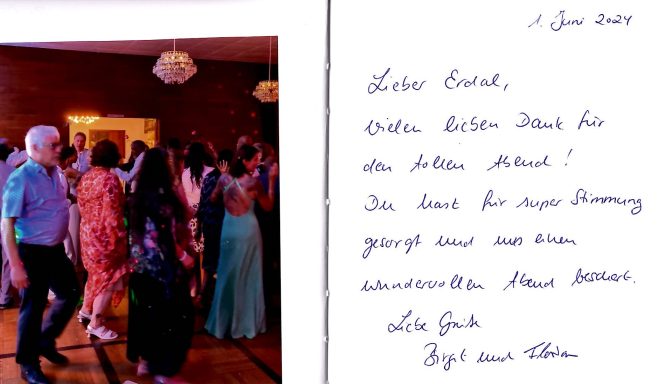 1. Juni 2024
Lieber Erdal,
vielen lieben Dank für
den tollen Abend!
Du hast für super Stimmung
gesorgt und uns einen
wundervollen Abend beschert.
Liebe Grüße
Birgit und Florian